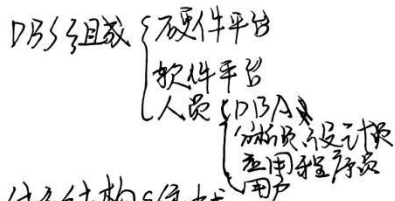 DBS组成{硬件平台
软件平台
人员{DBA
分析员、设计员
应用程序员
用户